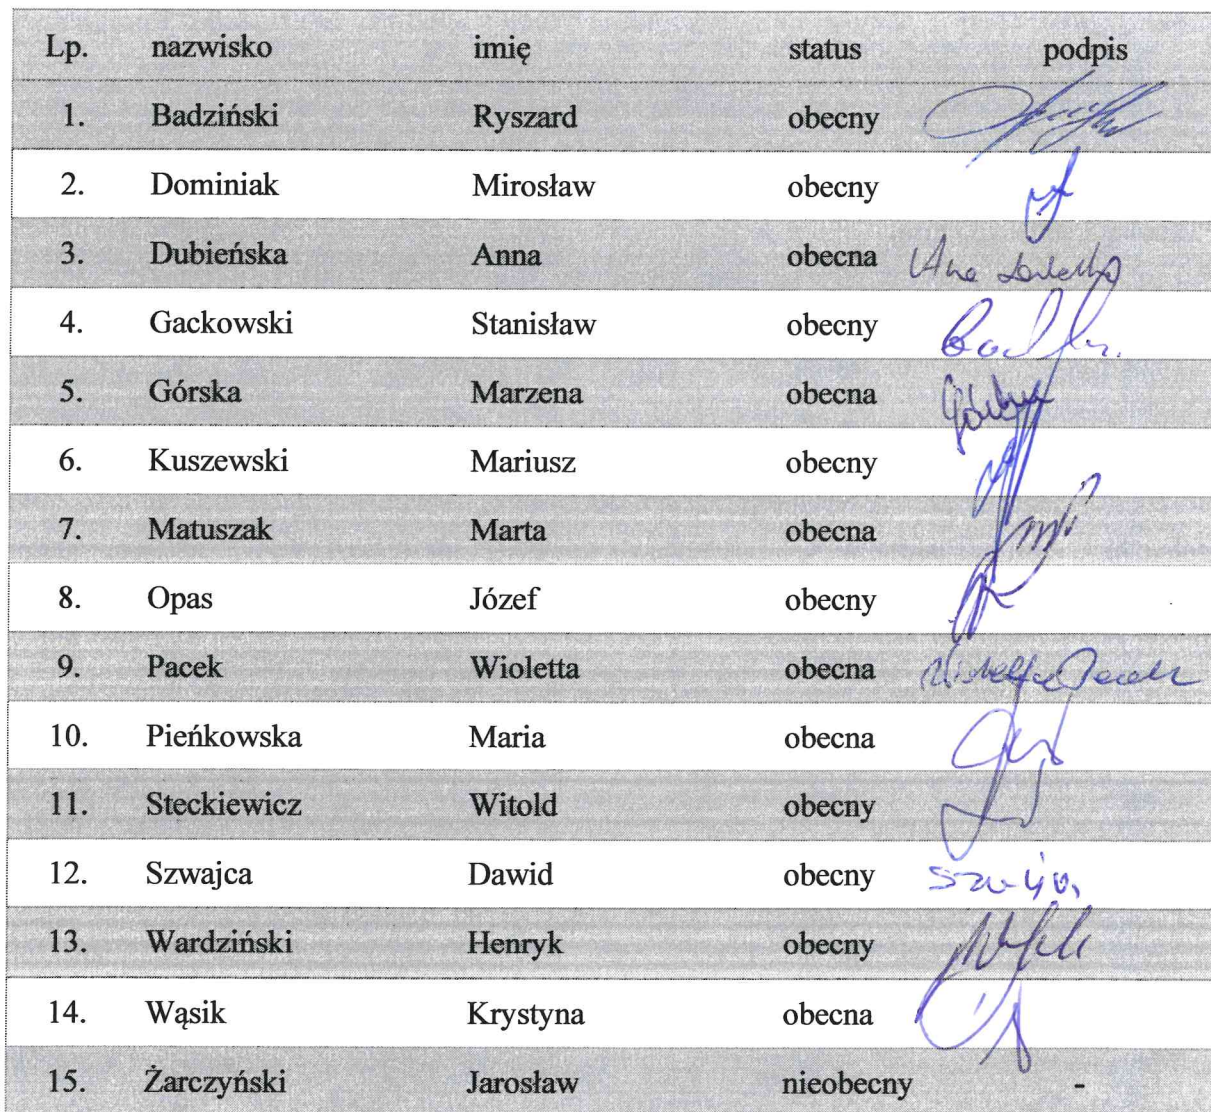 Lp. nazwisko imię status podpis
1. Badziński Ryszard obecny
2. Dominiak Mirosław obecny
3. Dubieńska Anna obecna
4. Gackowski Stanisław obecny
5. Górska Marzena obecna
6. Kuszewski Mariusz obecny
7. Matuszak Marta obecna
8. Opas Józef obecny
9. Pacek Wioletta obecna
10. Pieńkowska Maria obecna
11. Steckiewicz Witold obecny
12. Szwajca Dawid obecny
13. Wardziński Henryk obecny
14. Wąsik Krystyna obecna
15. Żarczyński Jarosław nieobecny -